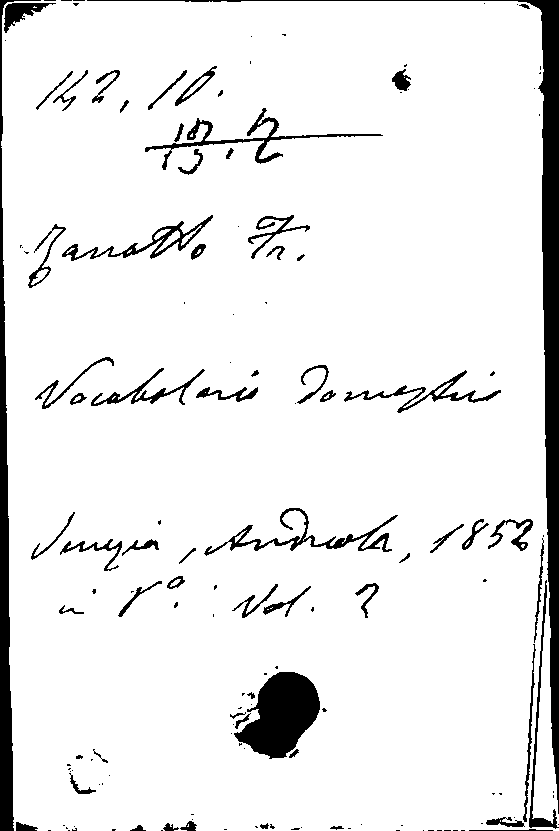 142, 10.
13.2
Zanotto Fr.
Vocabolario domestico
Venezia, Andreola, 1852
in 8°. Vol. 2